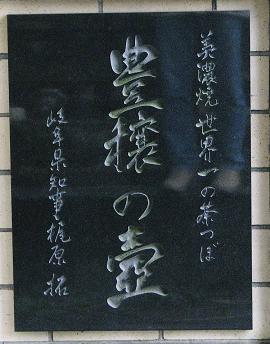 美濃焼世界一の茶つぼ
豊穣の壷
岐阜県知事梶原拓